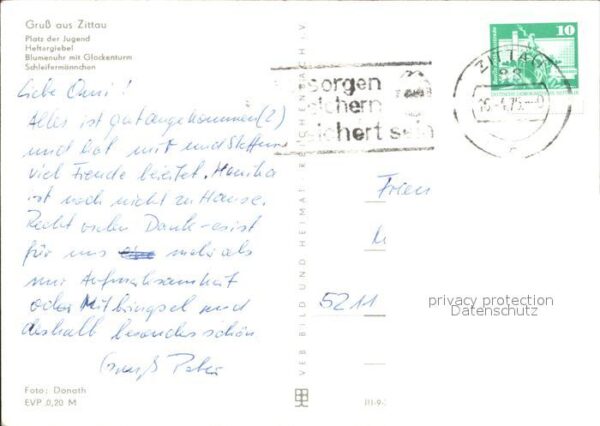 Gruß aus Zittau
Platz der Jugend
Heftergiebel
Blumenuhr mit Glockenturm
Schleifermännchen
Liebe Omi!
Alles ist gut angekommen (2)
und hat mir und Steffen
viel Freude bereitet. Monika
ist noch nicht zu Hause.
Recht vielen Dank - es ist
für uns mehr als
nur Aufmerksamkeit
oder Mitbringsel und
deshalb besonders schön
Gruß Peter
Foto: Donath
EVP 0,20 M
VEB BILD UND HEIMAT REICHENBACH i. V.
III-9-
sorgen
sichern
sichert sein
ZITTAU
88
10
5211
privacy protection
Datenschutz